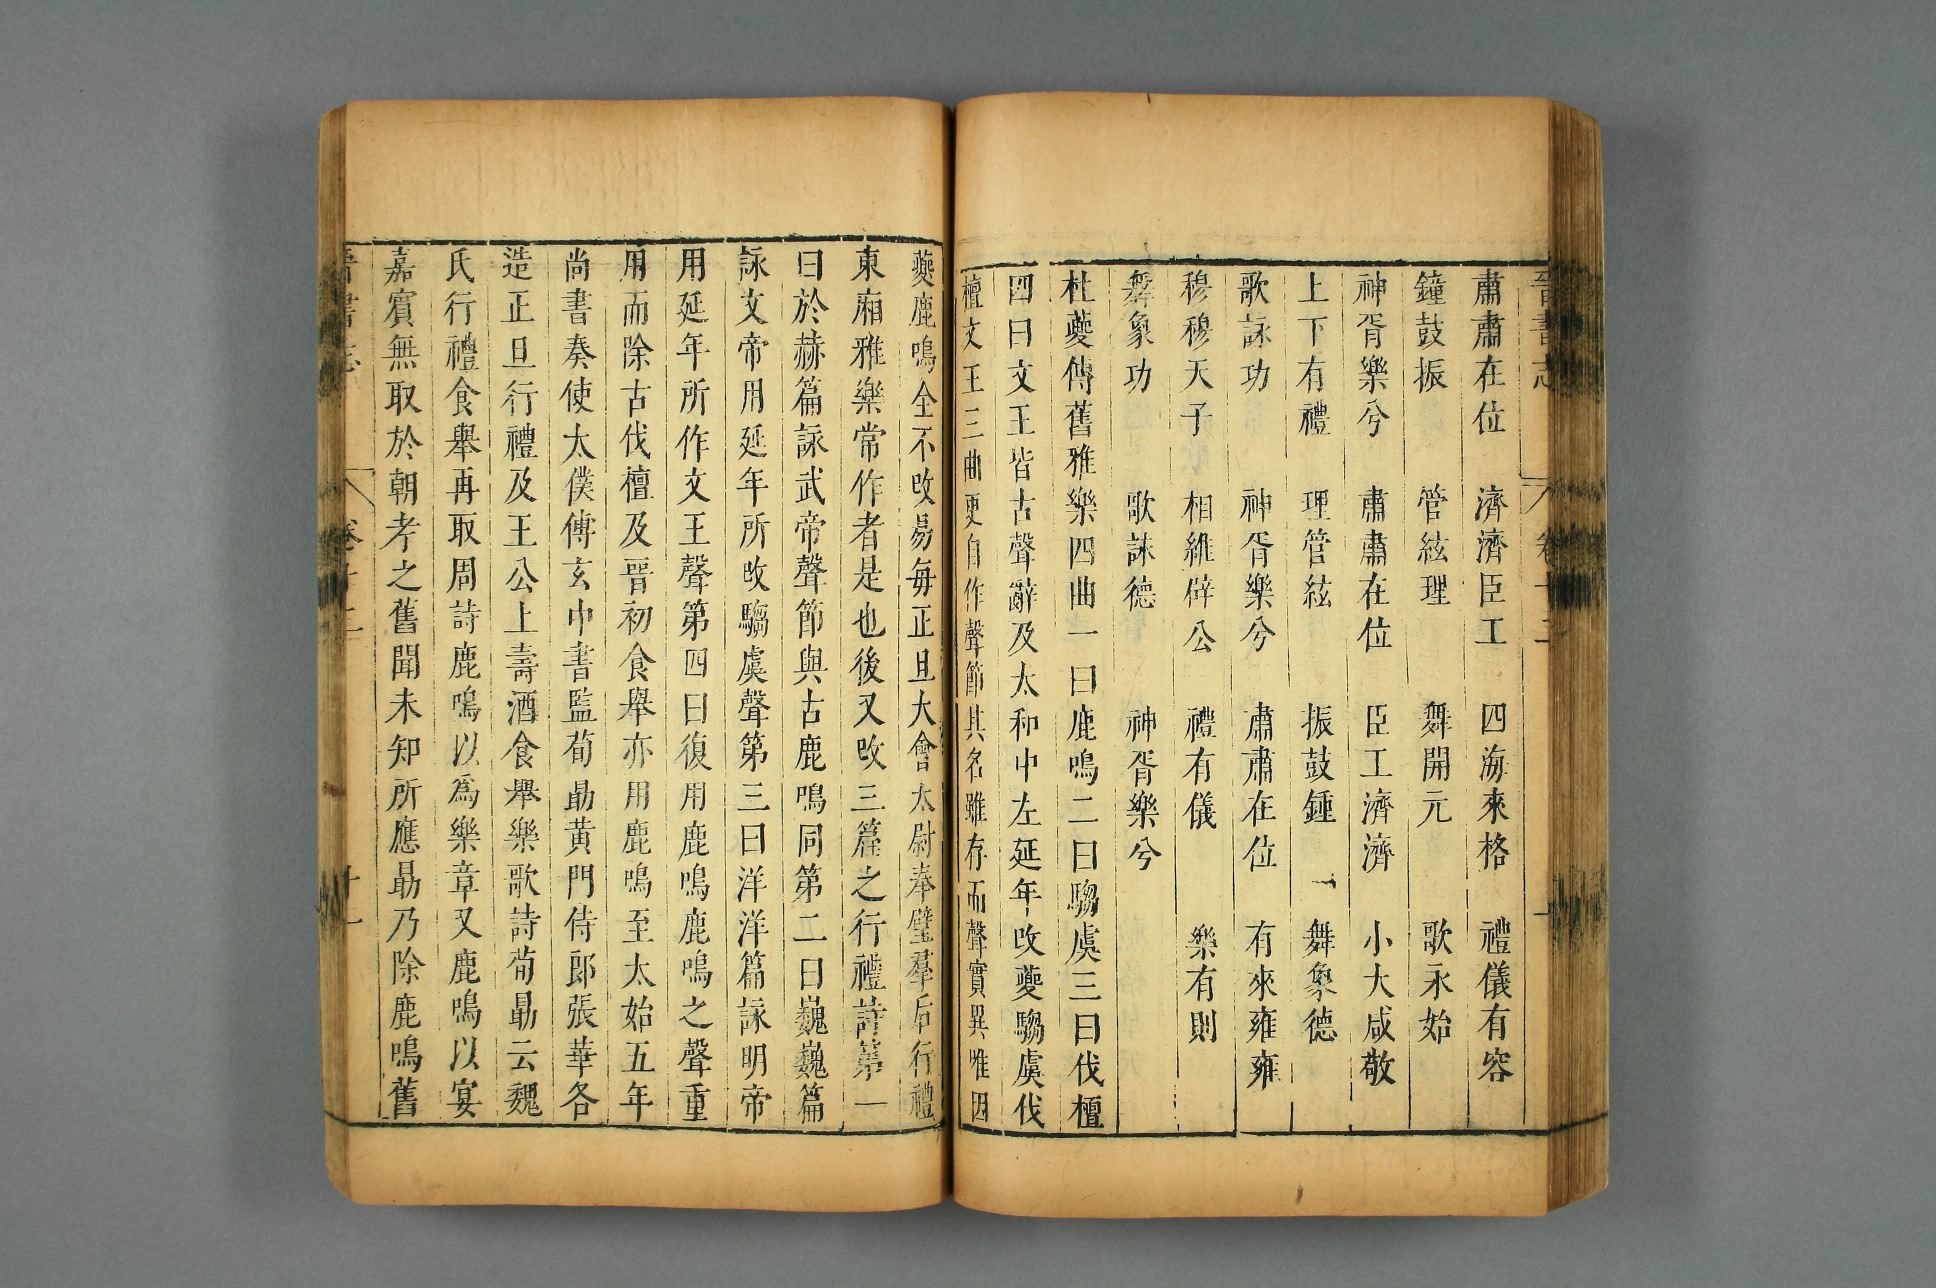 晉書志 卷十二
肅肅在位 濟濟臣工 四海來格 禮儀有容
鐘鼓振 管絃理 舞開元 歌永始
神胥樂兮 肅肅在位 臣工濟濟 小大咸敬
上下有禮 理管絃 振鼓鍾 舞象德
歌詠功 神胥樂兮 肅肅在位 有來雍雍
穆穆天子 相維辟公 禮有儀 樂有則
舞象功 歌詠德 神胥樂兮
杜夔傳舊雅樂四曲一曰鹿鳴二曰騶虞三曰伐檀
四曰文王皆古聲辭及太和中左延年改夔騶虞伐
檀文王三曲更自作聲節其名雖存而聲實異唯因
夔鹿鳴全不改易每正旦大會太尉奉璧羣后行禮
東廂雅樂常作者是也後又改三篇之行禮詩第一
曰於赫篇詠武帝聲節與古鹿鳴同第二曰巍巍篇
詠文帝用延年所改騶虞聲第三曰洋洋篇詠明帝
用延年所作文王聲第四曰復用鹿鳴鹿鳴之聲重
用而除古伐檀及晉初食舉亦用鹿鳴至太始五年
尚書奏使太僕傅玄中書監荀勗黃門侍郎張華各
造正旦行禮及王公上壽酒食舉樂歌詩荀勗云魏
氏行禮食舉再取周詩鹿鳴以爲樂章又鹿鳴以宴
嘉賓無取於朝考之舊聞未知所應勗乃除鹿鳴舊
晉書志 卷十二 十一